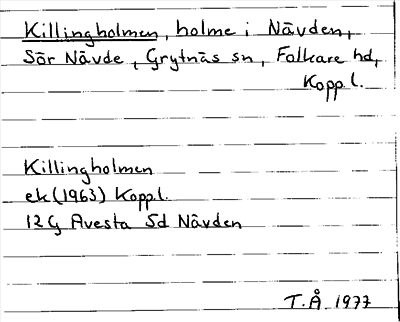 Killingholmen, holme i Nävden,
Sör Nävde, Grytnäs sn, Folkare hd,
Kopp.l.
Killingholmen
ek (1963) Kopp.l.
12 G Avesta 5d Nävden
T.Å. 1977